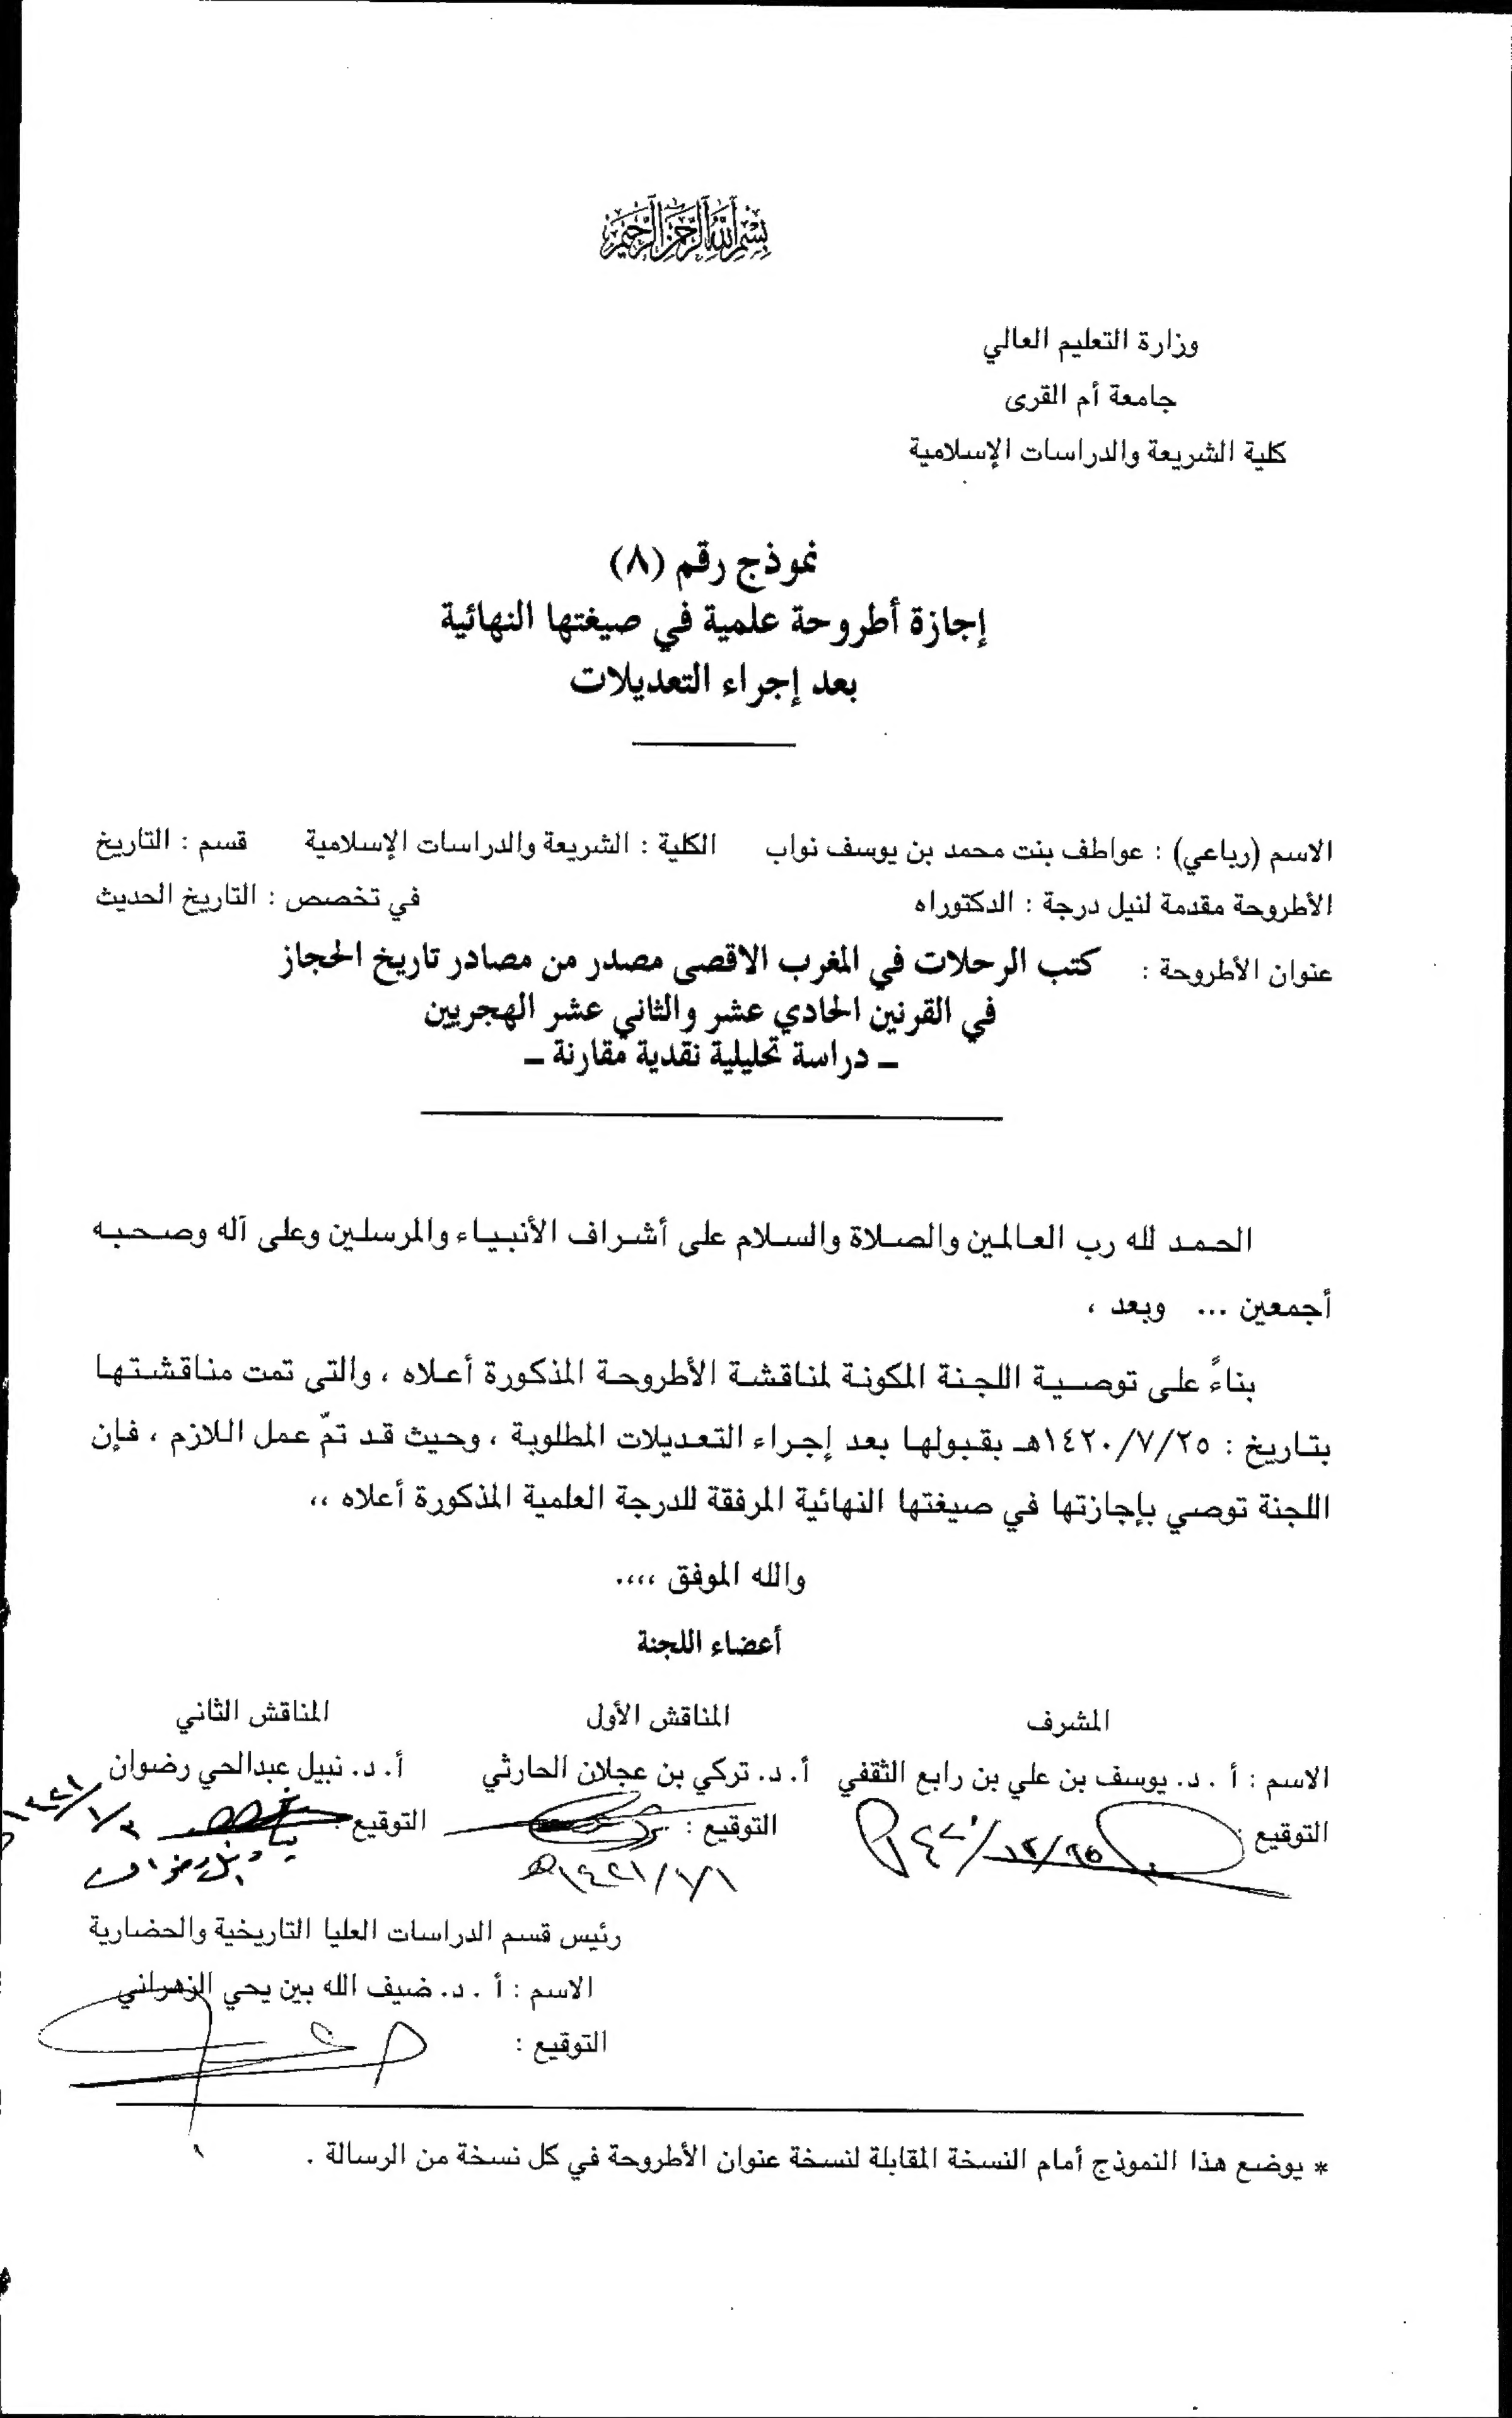 بسم الله الرحمن الرحيم
وزارة التعليم العالي
جامعة أم القرى
كلية الشريعة والدراسات الإسلامية
نموذج رقم (٨)
إجازة أطروحة علمية في صيغتها النهائية
بعد إجراء التعديلات
الاسم (رباعي) : عواطف بنت محمد بن يوسف نواب الكلية : الشريعة والدراسات الإسلامية قسم : التاريخ
الأطروحة مقدمة لنيل درجة : الدكتوراه في تخصص : التاريخ الحديث
عنوان الأطروحة : كتب الرحلات في المغرب الاقصى مصدر من مصادر تاريخ الحجاز
في القرنين الحادي عشر والثاني عشر الهجريين
ـ دراسة تحليلية نقدية مقارنة ـ
الحمد لله رب العالمين والصلاة والسلام على أشراف الأنبياء والمرسلين وعلى آله وصحبه
أجمعين ... وبعد ،
بناءً على توصية اللجنة المكونة لمناقشة الأطروحة المذكورة أعلاه ، والتي تمت مناقشتها
بتاريخ : ١٤٢٠/٧/٢٥هـ بقبولها بعد إجراء التعديلات المطلوبة ، وحيث قد تمّ عمل اللازم ، فإن
اللجنة توصي بإجازتها في صيغتها النهائية المرفقة للدرجة العلمية المذكورة أعلاه ،،
والله الموفق ،،،،
أعضاء اللجنة
المشرف المناقش الأول المناقش الثاني
الاسم : أ . د. يوسف بن علي بن رابع الثقفي أ. د. تركي بن عجلان الحارثي أ. د. نبيل عبدالحي رضوان
التوقيع : التوقيع : التوقيع :
نبيل رضوان
رئيس قسم الدراسات العليا التاريخية والحضارية
الاسم : أ . د. ضيف الله بين يحي الزهراني
التوقيع :
* يوضع هذا النموذج أمام النسخة المقابلة لنسخة عنوان الأطروحة في كل نسخة من الرسالة .